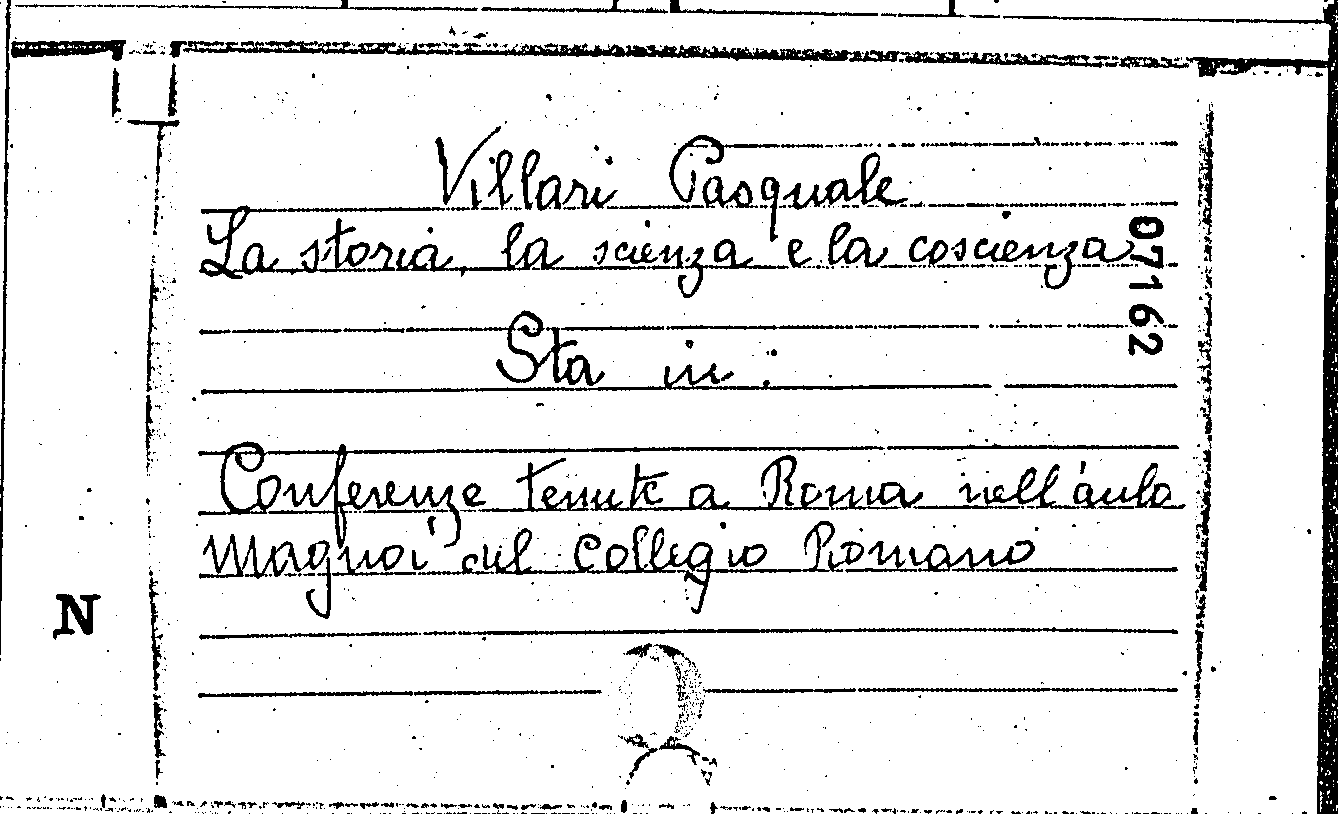 Villari Pasquale
La storia, la scienza e la coscienza
07162
Sta in:
Conferenze tenute a Roma nell'aula
Magna del Collegio Romano
N